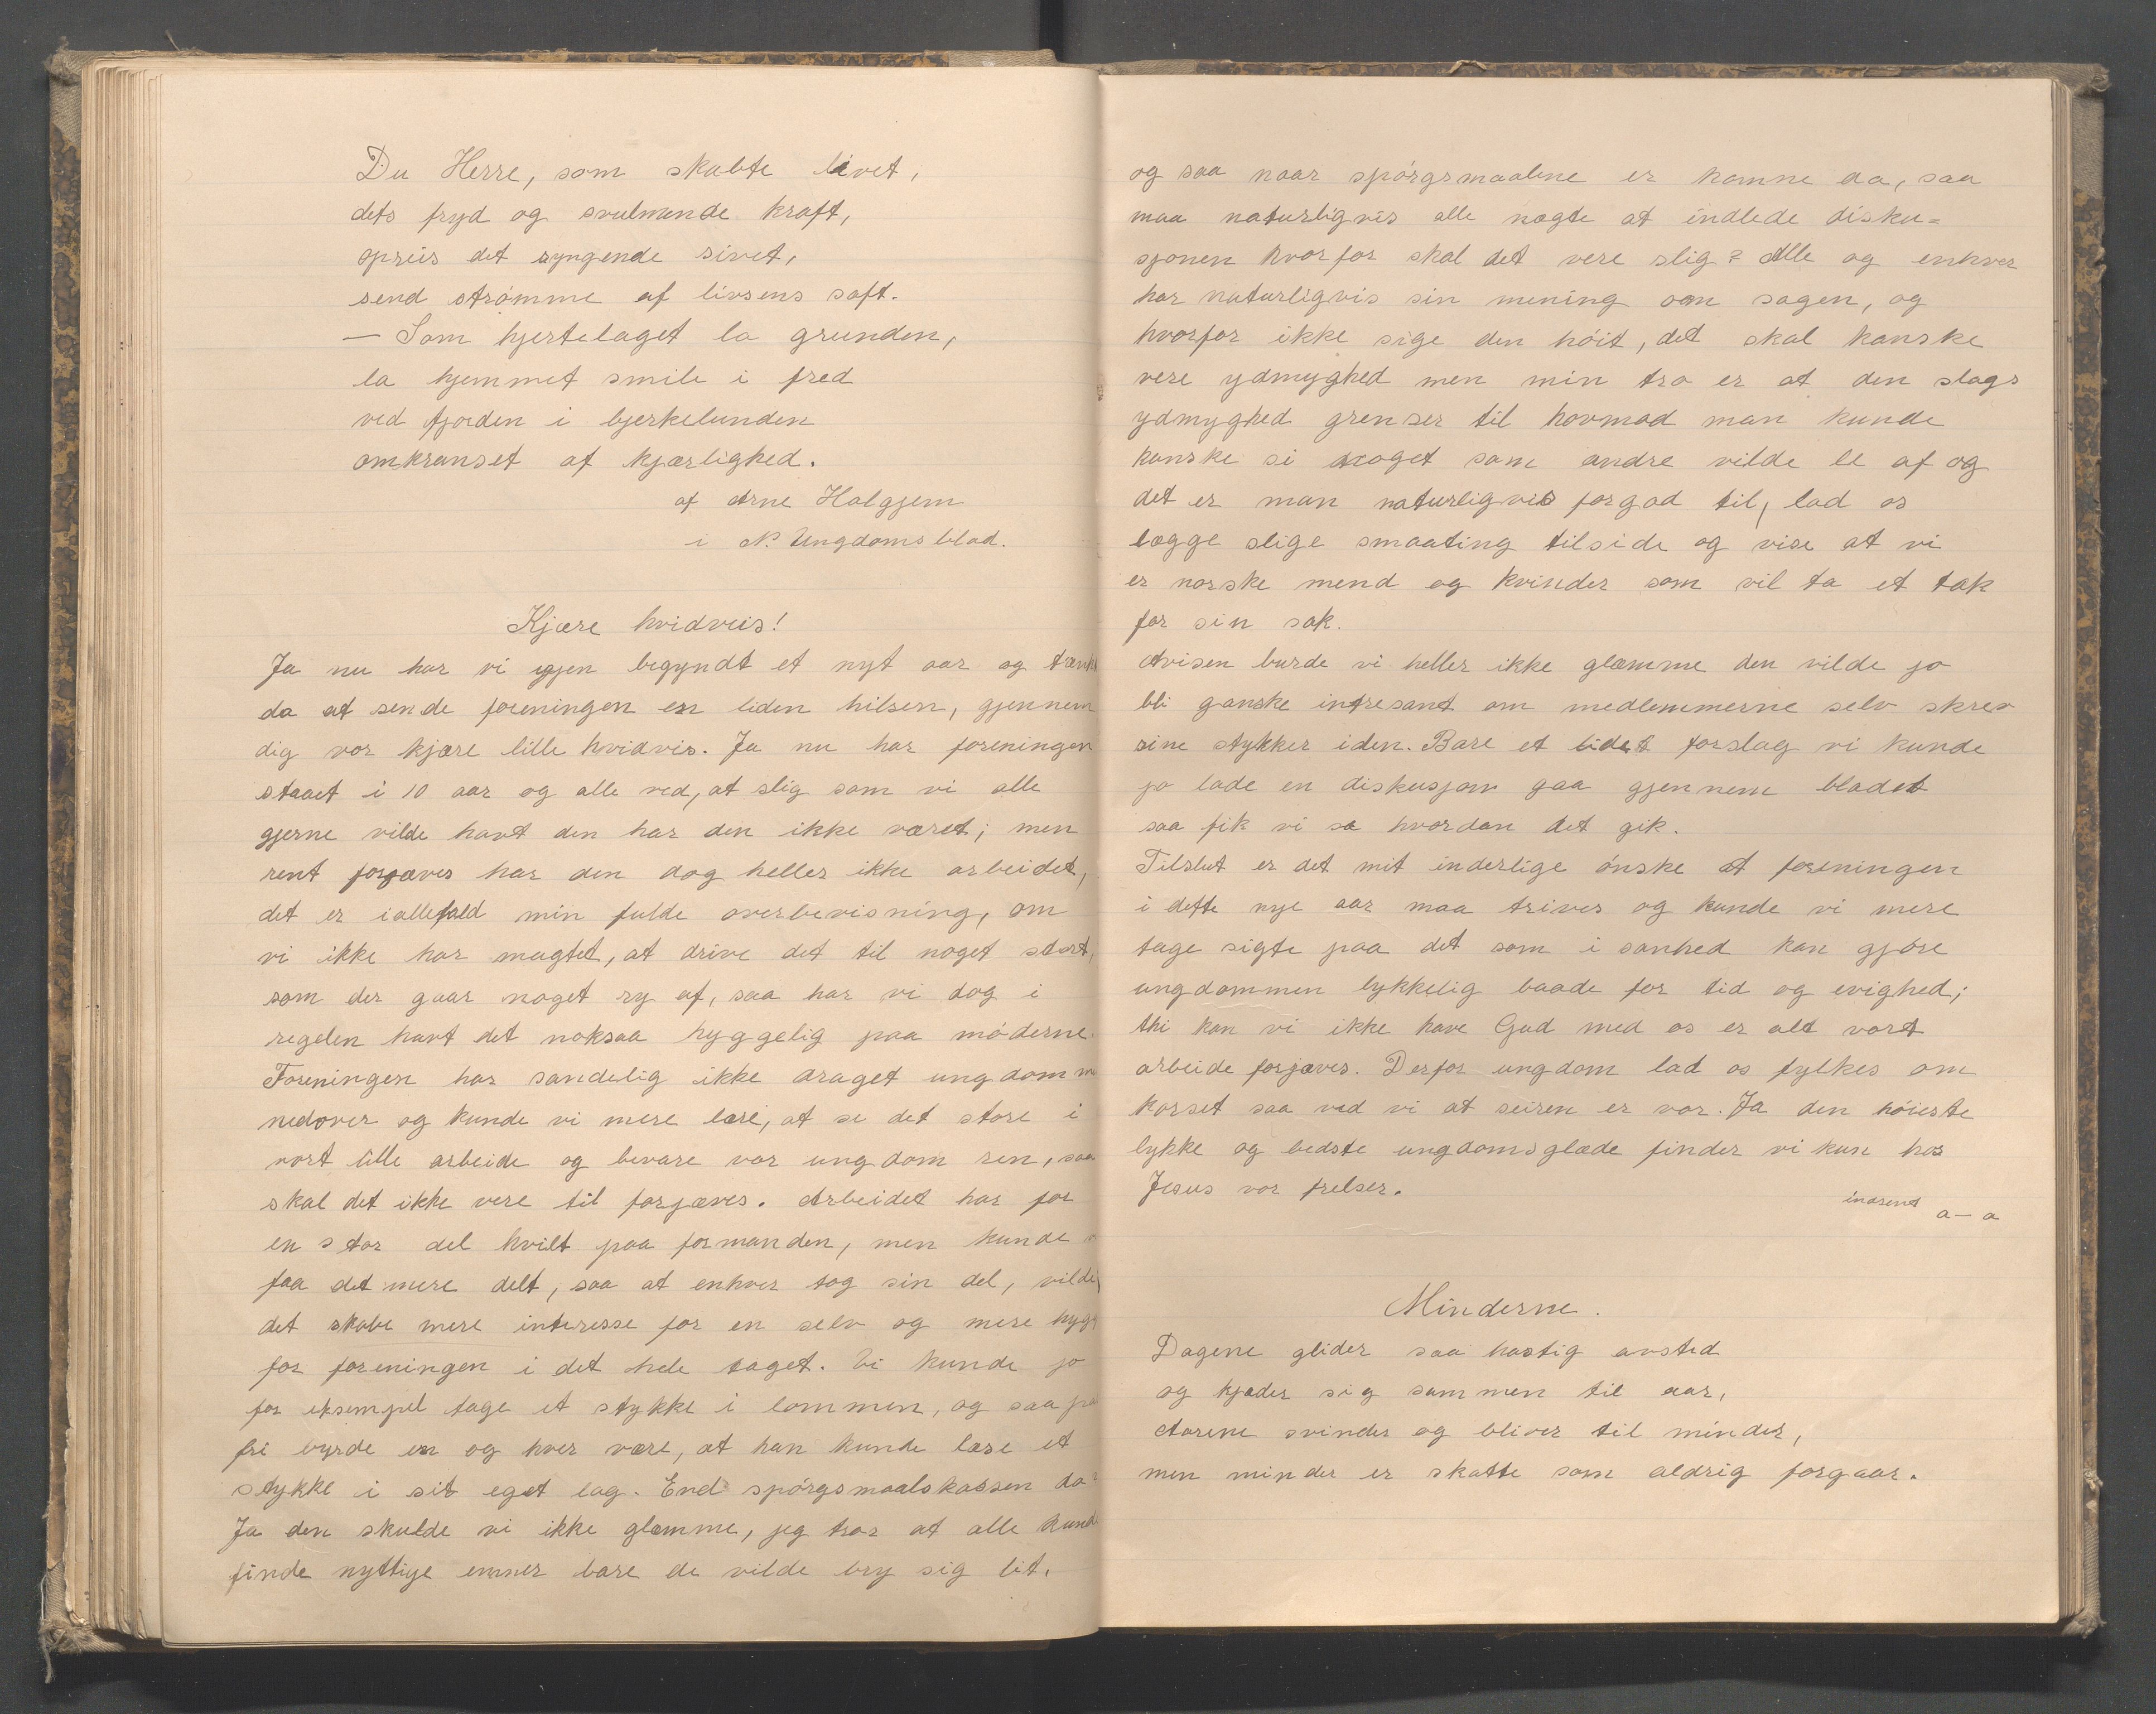 Du Herre, som skabte livet,
dets fryd og svulmende kraft,
opreis det syngende sivet,
send strømme af livsens saft.
— Som hjertelaget la grunden,
la hjemmet smile i fred
ved fjorden i bjerkelunden
omkranset af kjærlighed.
af Arne Halgjem
i N. Ungdomsblad.
Kjære hvidveis!
Ja nu har vi igjen begyndt et nyt aar og tænk
da at sende foreningen en liden hilsen, gjennem
dig vor kjære lille hvidvis. Ja nu har foreningen
staaet i 10 aar og alle ved, at slig som vi alle
gjerne vilde havt den har den ikke været; men
rent forgæves har den dog heller ikke arbeidet,
det er iallefald min fulde overbevisning, om
vi ikke har magtet, at drive det til noget stort,
som der gaar noget ry af, saa har vi dog i
regelen havt det noksaa hyggelig paa møderne.
Foreningen har sandelig ikke draget ungdomm
nedover og kunde vi mere lære, at se det store i
vort lille arbeide og bevare vor ungdom ren, saa
skal det ikke vere til forgjæves. Arbeidet har for
en stor del hvilt paa formanden, men kunde v
faa det mere delt, saa at enhver tog sin del, vilde
det skabe mere interesse for en selv og mere hygg
for foreningen i det hele taget. Vi kunde jo
for eksempel tage et stykke i lommen, og saa paa
fri byrde en og hver være, at han kunde læse et
stykke i sit eget lag. End spørgsmaalskassen da?
Ja den skulde vi ikke glæmme, jeg tror at alle kunde
finde nyttige emner bare de vilde bry sig lit.
og saa naar spørgsmaalene er komne da, saa
maa naturligvis alle nægte at indlede disku=
sjonen hvorfor skal det vere slig? Alle og enhver
har naturligvis sin mening om sagen, og
hvorfor ikke sige den høit, det skal kanske
vere ydmyghed men min tro er at den slags
ydmyghed grenser til hovmod man kunde
kanske si noget som andre vilde le af og
det er man naturligvis forgod til, lad os
lægge slige smaating tilside og vise at vi
er norske mend og kvinder som vil ta et tak
for sin sak.
Avisen burde vi heller ikke glæmme den vilde jo
bli ganske intresant om medlemmerne selv skrev
sine stykker iden. Bare et lidet forslag vi kunde
jo lade en diskusjon gaa gjennem bladet
saa fik vi se hvordan det gik.
Tilslut er det mit inderlige ønske at foreningen
i dette nye aar maa trives og kunde vi mere
tage sigte paa det som i sanhed kan gjøre
ungdommen lykkelig baade for tid og evighed;
thi kan vi ikke have Gud med os er alt vort
arbeide forjæves. Derfor ungdom lad os fylkes om
korset saa ved vi at seiren er vor. Ja den høieste
lykke og bedste ungdomsglæde finder vi kun hos
Jesus vor frelser.
indsent a—a
Minderne.
Dagene glider saa hastig avsted
og kjæder sig sammen til aar,
Aarene svinder og bliver til minder,
men minder er skatte som aldrig forgaar.